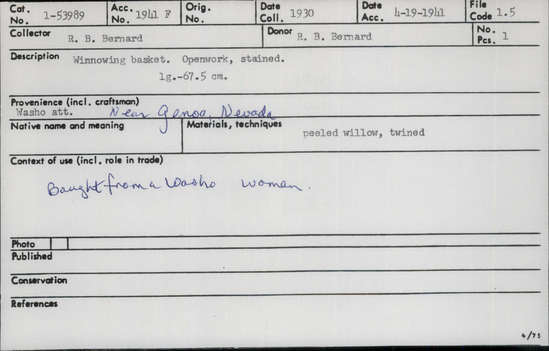 Cat. No. 1-53989 Acc. No. 1941 F Orig. No. Date Coll. 1930 Date Acc. 4-19-1941 File Code 1.5
Collector R. B. Bernard Donor R. B. Bernard No. Pcs. 1
Description Winnowing basket. Openwork, stained.
lg.-67.5 cm.
Provenience (incl. craftsman)
Washo att. Near Genoa, Nevada
Native name and meaning Materials, techniques
peeled willow, twined
Context of use (incl. role in trade)
Bought from a Washo woman.
Photo
Published
Conservation
References
4/75